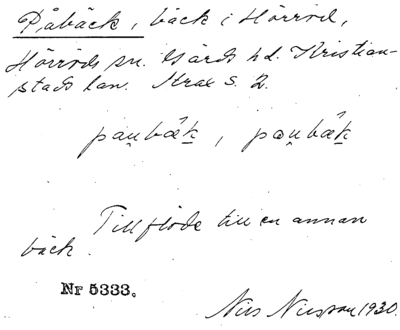 Påbäck, bäck i Hörröd,
Hörröds sn. Gärds hd. Kristian-
stads län. Krax s. 2.
pau̯bæk, pau̯bæk
Tillflöde till en annan
bäck.
Nr 5333.
Nils Nilsson 1930.